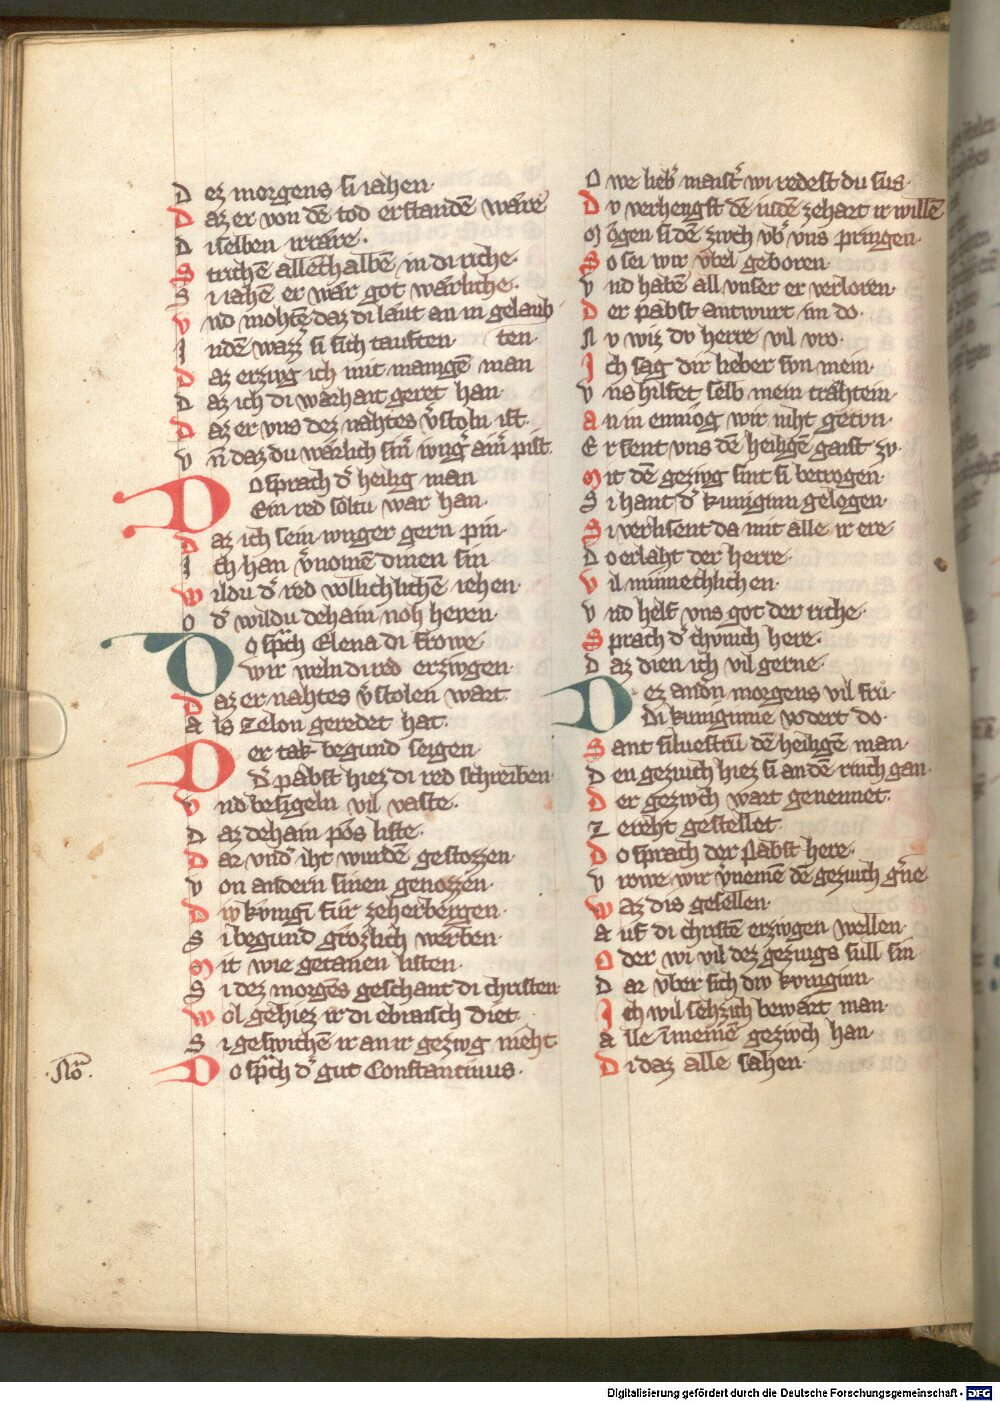 D ez morgens si iahen·
D az er von dē tod erstandē wāre
D i selben irrāre·
S trichē allēthalbē in di riche·
S i iahē er wār got wārliche·
v nd mohtz daz di lāut an in gelaub
I ndē wazz si sich tauften· ten·
D az erzivg ich mit manigē man
D az ich di warhait geret han·
D az er vns dez nahtes v̄stoln ist·
v n̄ daz du wārlich sin̄ ivnḡ ain̄ pist·
Do sprach d̄ heilig man
Ein red soltu war han·
D az ich sein iunger gern pin
I ch han v̄nomē dinen sin
W ildu d̄ red vollichlichē iehen·
O d̄ wildu dehain noh heren·
Do sp̄ch Elena di frowe·
wir weln di red erzivgen·
D az er nahtes v̄stolen wart·
A ls Zelon geredet hat·
Der tak begund seigen·
D̄ pabst hiez di red schreiben·
V nd besigeln vil vaste·
D az dehain pōs liste·
D ar vnd̄ iht wurdē gestozzen·
V on andern sinen genozzen·
D iv kv̄nigī fūr zeherbergen·
S i begund grozlich werben·
M it wie getanen listen·
S i dez morgēs geschant di christen·
W ol gehiez ir di ebraisch diet·
S i geswichē ir an ir gezivg nieht·
Do sp̄ch d̄ gut Constantinus·
·No·
O we lieb̄ maist̄ wi redest du sus·
D v verhengst dē iudē zehart ir willē
M ōgen si dē zivch vb̄ vns pringen·
S o sei wir v̄bel geboren·
V nd habē all vnser er verloren·
D er pabst antwurt im do·
N v wiz dv herre vil vro·
I ch sag dir lieber svn mein·
V ns hilfet selb mein trāhtein·
A n in enmog wir niht getvn·
E r sent vns dē heiligē gaist zv·
M it dē gezivg sint si betrogen·
S i hant d̄ kuniginn gelogen·
S i verlisent da mit alle ir ere·
D o erlaht der herre·
V il minnechlichen·
V nd helf vns got der riche·
S prach d̄ chvnich here·
D az dien ich vil gerne·
Dez andn̄ morgens vil frū·
Di kuniginne vodert do·
S ant siluestrū dē heiligē man·
D en gezivch hiez si an dē rinch gan·
D er gezivch wart genennet·
Z ereht gestellet·
D o sprach der Pabst here·
V rowe wir v̄nemē dē gezivch ḡne
W az dis gesellen·
A uf di christē erzivgen wellen·
O der wi vil dez gezivgs sull sin·
D ar v̄ber sich div kvniginn·
I ch wil sehzich bewārt man·
A lle in meinē gezivch han·
D i daz alle sahen·
Digitalisierung gefördert durch die Deutsche Forschungsgemeinschaft - DFG